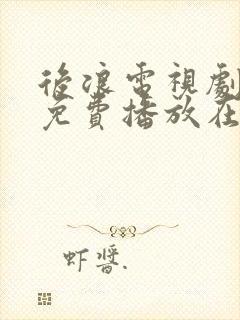 後浪電視劇
免費播放在
虾醬.